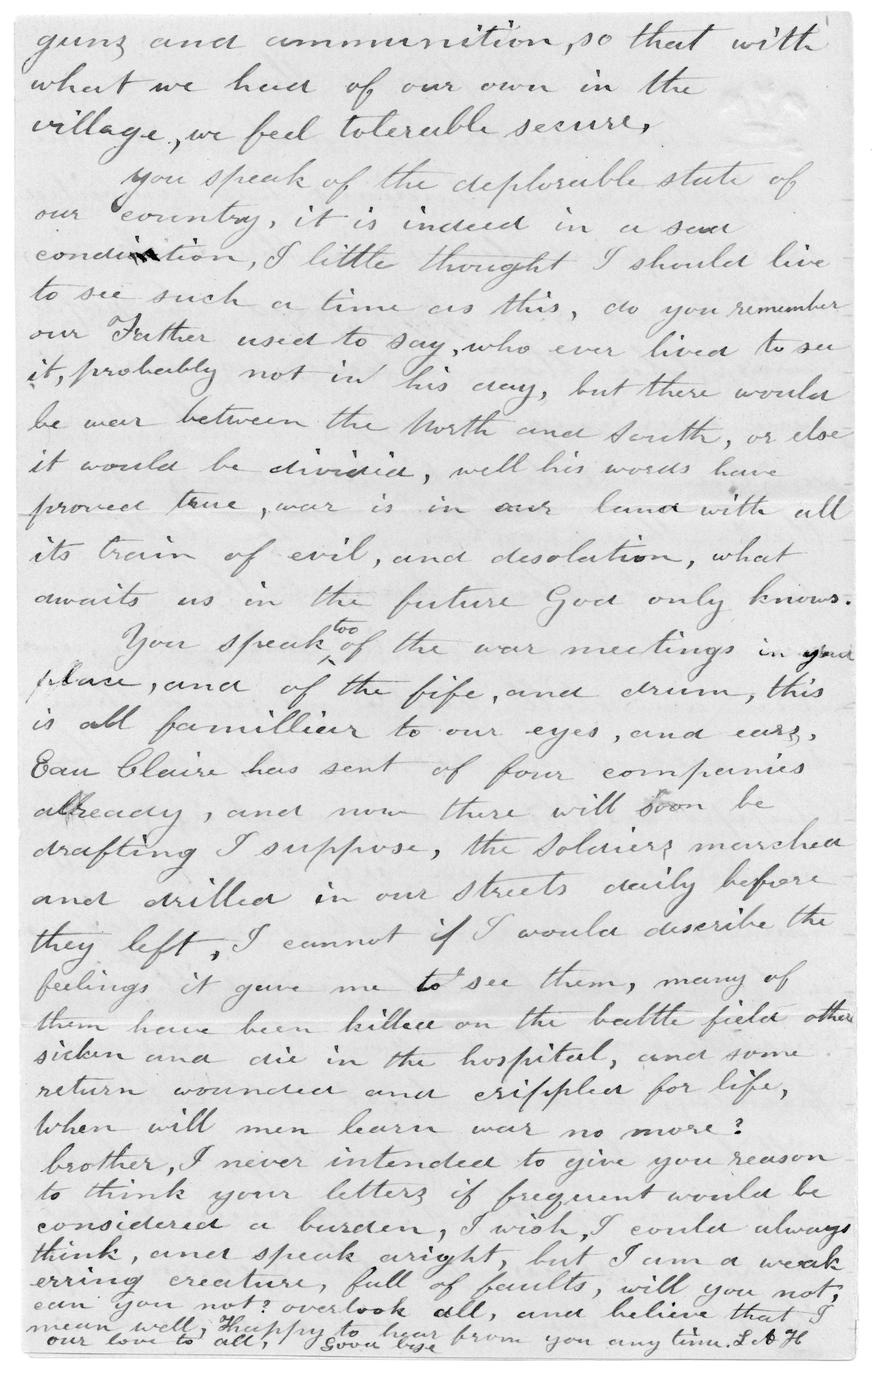 guns and ammunition, so that with
what we had of our own in the
village, we feel tolerable secure,
You speak of the deplorable state of
our country, it is indeed in a sad
condition, I little thought I should live
to see such a time as this, do you remember
our Father used to say, who ever lived to see
it, probably not in his day, but there would
be war between the North and South, or else
it would be dividid, well his words have
proved true, war is in our land with all
its train of evil, and desolation, what
awaits us in the future God only knows.
You speak too of the war meetings in your
place, and of the fife, and drum, this
is all familliar to our eyes, and ears,
Eau Claire has sent of four companies
already, and now there will soon be
drafting I suppose, the Soldiers marched
and drilled in our streets daily before
they left, I cannot if I would describe the
feelings it gave me to see them, many of
them have been killed on the battle field others
sicken and die in the hospital, and some
return wounded and crippled for life,
When will men learn war no more?
brother, I never intended to give you reason
to think your letters if frequent would be
considered a burden, I wish, I could always
think, and speak aright, but I am a weak
erring creature, full of faults, will you not,
can you not? overlook all, and believe that I
mean well, Happy to hear from you any time. L A H
our love to all, Good bye